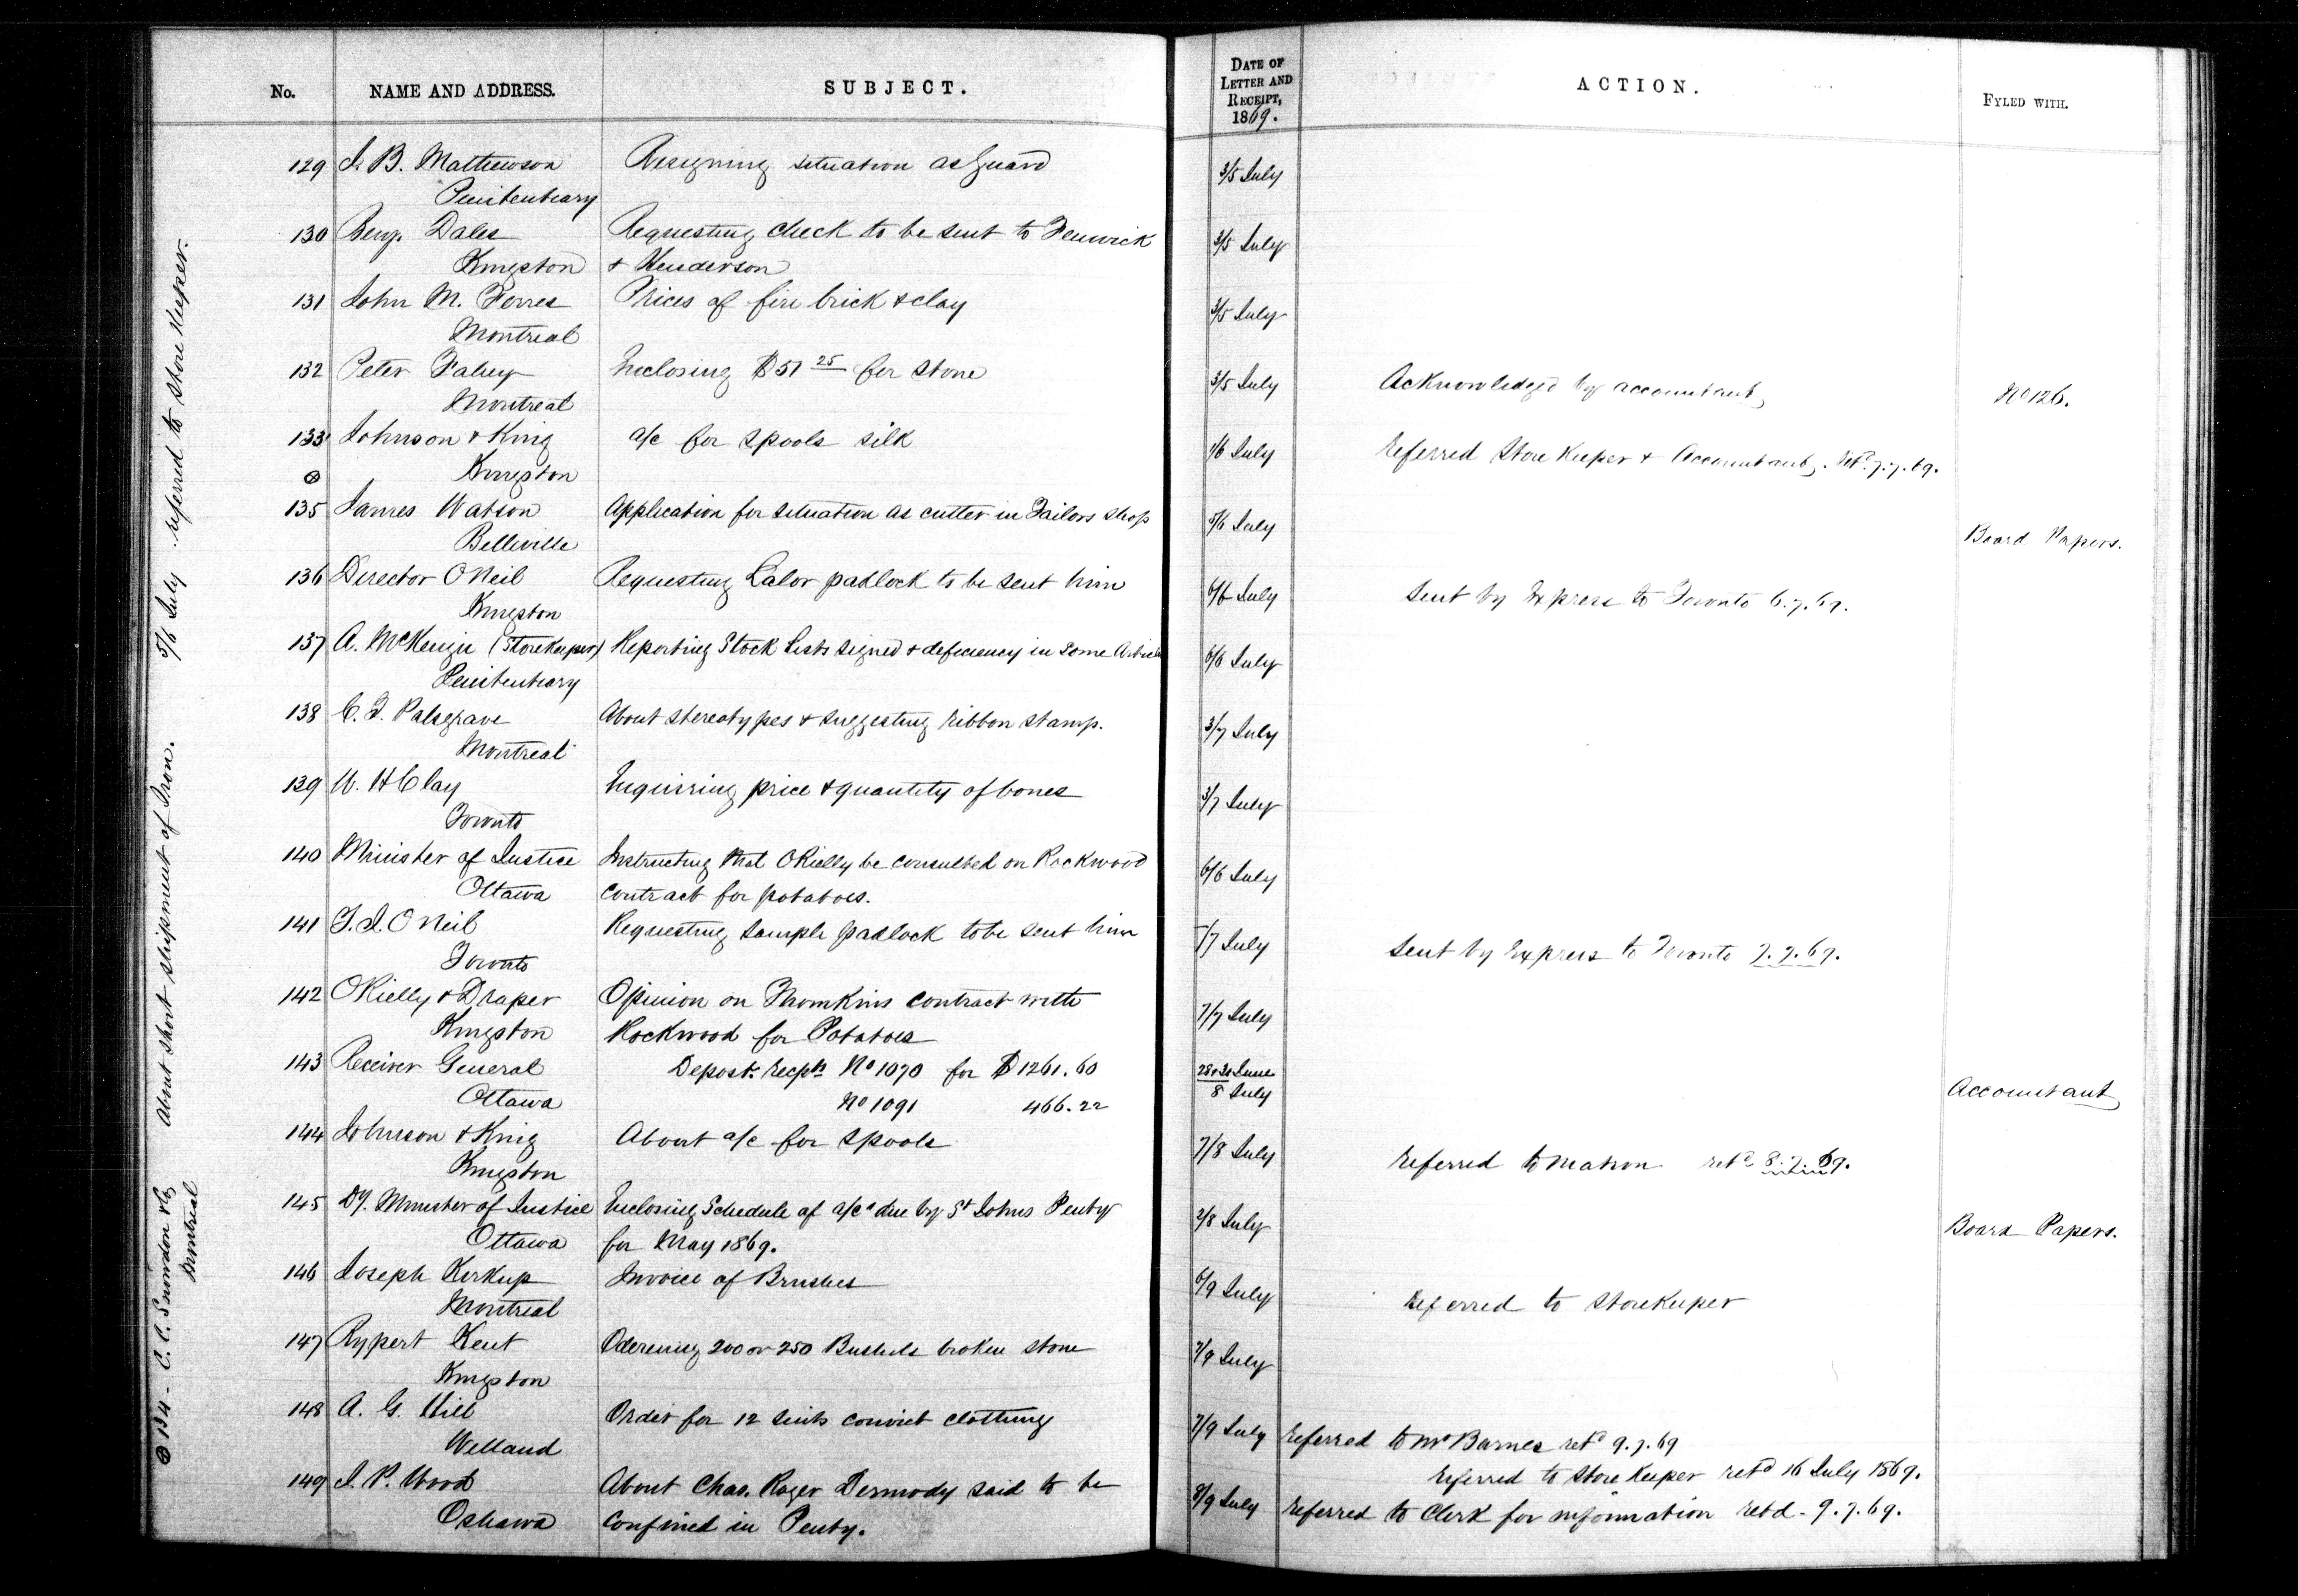 No. NAME AND ADDRESS. SUBJECT. DATE OF LETTER AND RECEIPT, 1869. ACTION. FYLED WITH.
129 J. B. Mathewson Resigning situation as Guard 3/5 July
Penitentiary
130 Benj. Dales Requesting check to be sent to Fenwick 3/5 July
Kingston & Henderson
131 John M. Forres Prices of fire brick & clay 3/5 July
Montreal
132 Peter Fahey Inclosing $51 25 for stone 3/5 July Acknowledged by accountant No 126.
Montreal
133 Johnson & King a/c for spools silk 1/6 July Referred Store Keeper & Accountant. retd. 7.7.69.
⊕ Kingston
135 James Watson Application for situation as cutter in Tailors shop 5/6 July Board Papers.
Belleville
136 Director ONeil Requesting Lalor padlock to be sent him 6/6 July Sent by Express to Toronto 6.7.69.
Kingston
137 A. McKenzie (Storekeeper) Reporting Stock Lists signed & deficiency in some Articles 6/6 July
Penitentiary
138 C. T. Palsgrave About stereotypes & suggesting ribbon stamp. 3/7 July
Montreal
139 W. H Clay Inquiring price & quantity of bones 3/7 July
Toronto
140 Minister of Justice Instructing that ORielly be consulted on Rockwood 6/6 July
Ottawa contract for potatoes.
141 T. J. ONeil Requesting sample padlock to be sent him –/7 July Sent by Express to Toronto 7.7.69.
Toronto
142 ORielly & Draper Opinion on Thomkins contract with 7/7 July
Kingston Rockwood for Potatoes
143 Receiver General Depost. recpts No 1070 for $1261.60 28 & 30 June
Ottawa No 1091 466.22 8 July Accountant
144 Johnson & King About a/c for spools 7/8 July Referred to matron retd 8.7.69.
Kingston
145 Dy. Minister of Justice Inclosing Schedule of a/cs due by St Johns Penty 2/8 July Board Papers.
Ottawa for May 1869.
146 Joseph Kirkup Invoice of Brushes 6/9 July Referred to Storekeeper
Montreal
147 Rypert Kent Oderening 200 or 250 Bushels broken stone 7/9 July
Kingston
148 A. G. Hill Order for 12 suits convict clothing 7/9 July Referred to Mr Barnes retd 9.7.69
Welland Referred to Store Keeper retd 16 July 1869.
149 J. P. Wood About Chas. Roger Dermody said to be 8/9 July Referred to Clerk for information retd. 9.7.69.
Oshawa confined in Penty.
⊕ 134 - C. C. Snowdon & Co Montreal About short shipment of Iron. 5/6 July referred to Store Keeper.